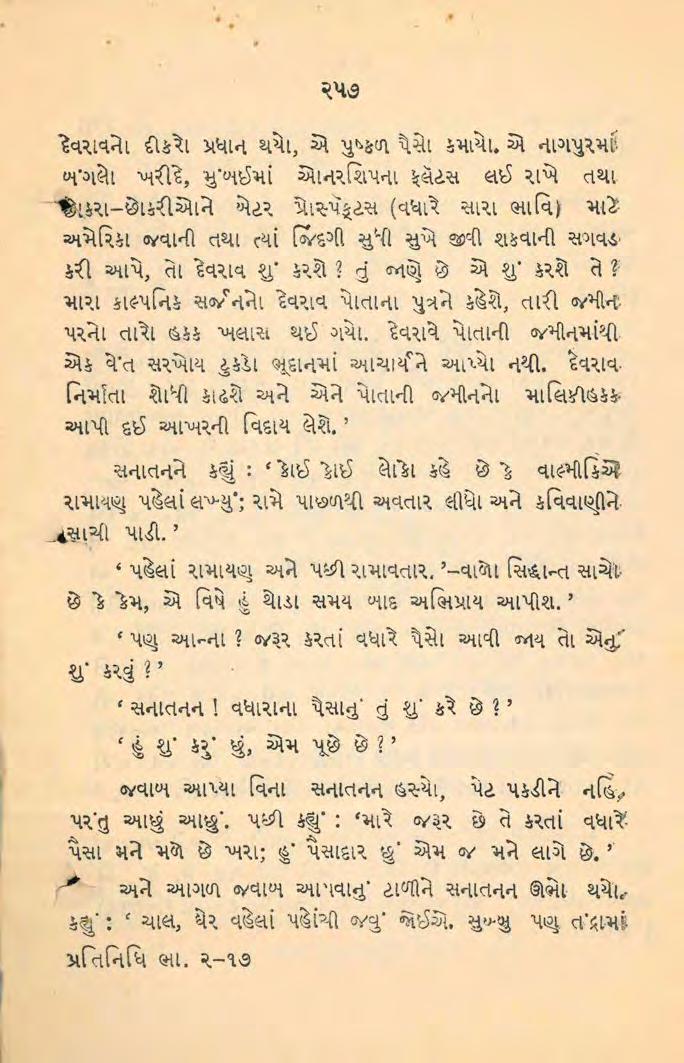 ૨૫૭
દેવરાવનો દીકરો પ્રધાન થયો, એ પુષ્કળ પૈસો કમાયો. એ નાગપુરમાં
બંગલો ખરીદે, મુંબઈમાં ઓનરશિપના ફ્લૅટસ લઈ રાખે તથા
છોકરા–છોકરીઓને બેટર પ્રોસ્પૅક્ટસ (વધારે સારા ભાવિ) માટે
અમેરિકા જવાની તથા ત્યાં જિંદગી સુધી સુખે જીવી શકવાની સગવડ
કરી આપે, તો દેવરાવ શું કરશે ? તું જાણે છે એ શું કરશે તે ?
મારા કાલ્પનિક સર્જનનો દેવરાવ પોતાના પુત્રને કહેશે, તારી જમીન
પરનો તારો હક્ક ખલાસ થઈ ગયો. દેવરાવે પોતાની જમીનમાંથી
એક વેંત સરખોય ટુકડો ભૂદાનમાં આચાર્યને આપ્યો નથી. દેવરાવ
નિર્માતા શોધી કાઢશે અને એને પોતાની જમીનનો માલિકીહક્ક
આપી દઈ આખરની વિદાય લેશે. ’
સનાતનને કહ્યું : ‘ કોઈ કોઈ લોકો કહે છે કે વાલ્મીકિએ
રામાયણ પહેલાં લખ્યું; રામે પાછળથી અવતાર લીધો અને કવિવાણીને
સાચી પાડી. ’
‘ પહેલાં રામાયણ અને પછી રામાવતાર. ’–વાળો સિદ્ધાન્ત સાચો
છે કે કેમ, એ વિષે હું થોડા સમય બાદ અભિપ્રાય આપીશ. ’
‘ પણ આન્ના ? જરૂર કરતાં વધારે પૈસો આવી જાય તો એનું
શું કરવું ? ’
‘ સનાતનન ! વધારાના પૈસાનું તું શું કરે છે ? ’
‘ હું શું કરું છું, એમ પૂછે છે ? ’
જવાબ આપ્યા વિના સનાતનન હસ્યો, પેટ પકડીને નહિ,
પરંતુ આછું આછું. પછી કહ્યું : ‘મારે જરૂર છે તે કરતાં વધારે
પૈસા મને મળે છે ખરા; હું પૈસાદાર છું એમ જ મને લાગે છે. ’
અને આગળ જવાબ આપવાનું ટાળીને સનાતનન ઊભો થયો.
કહ્યું : ‘ ચાલ, ઘેર વહેલાં પહોંચી જવું જોઈએ. સુબ્બુ પણ તંદ્રામાં
પ્રતિનિધિ ભા. ૨–૧૭